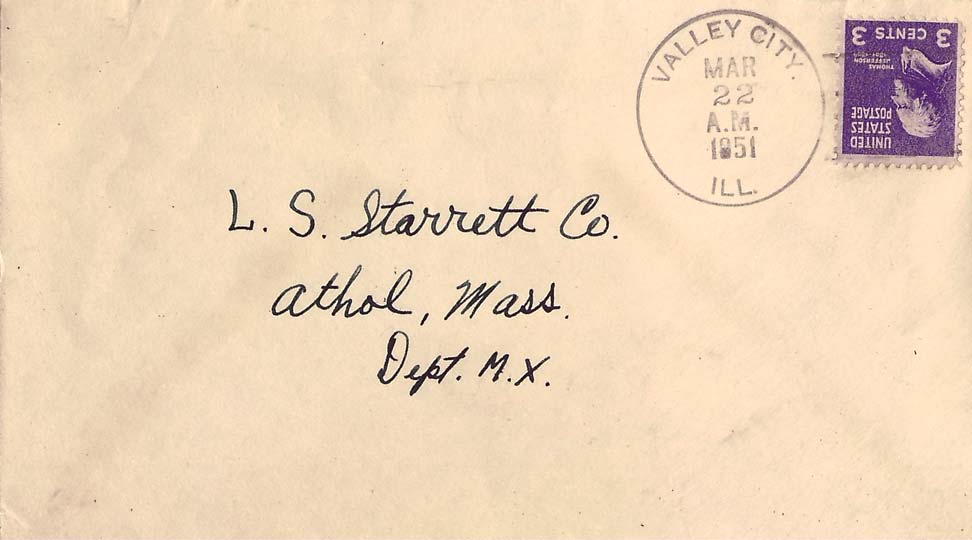 VALLEY CITY.
MAR
22
A.M.
1951
ILL.
3 CENTS 3
THOMAS
JEFFERSON
UNITED
STATES
POSTAGE
L. S. Starrett Co.
Athol, Mass.
Dept. M.X.